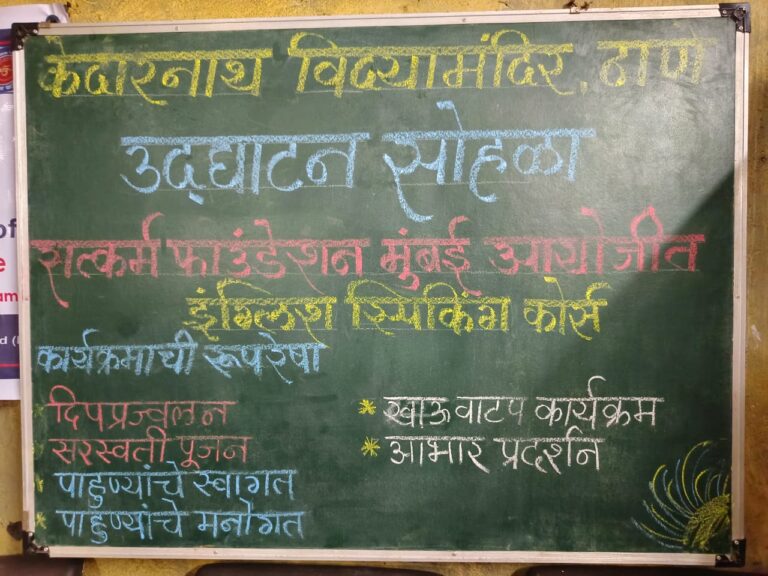 केदारनाथ विद्यामंदिर, ठाणे
उद्घाटन सोहळा
सत्कर्म फाउंडेशन मुंबई आयोजीत
इंग्लिश स्पिकिंग कोर्स
कार्यक्रमाची रूपरेषा
दिपप्रज्वलन
सरस्वती पूजन
* पाहुण्यांचे स्वागत
* पाहुण्यांचे मनोगत
* खाऊ वाटप कार्यक्रम
* आभार प्रदर्शन
of
e
am
d (